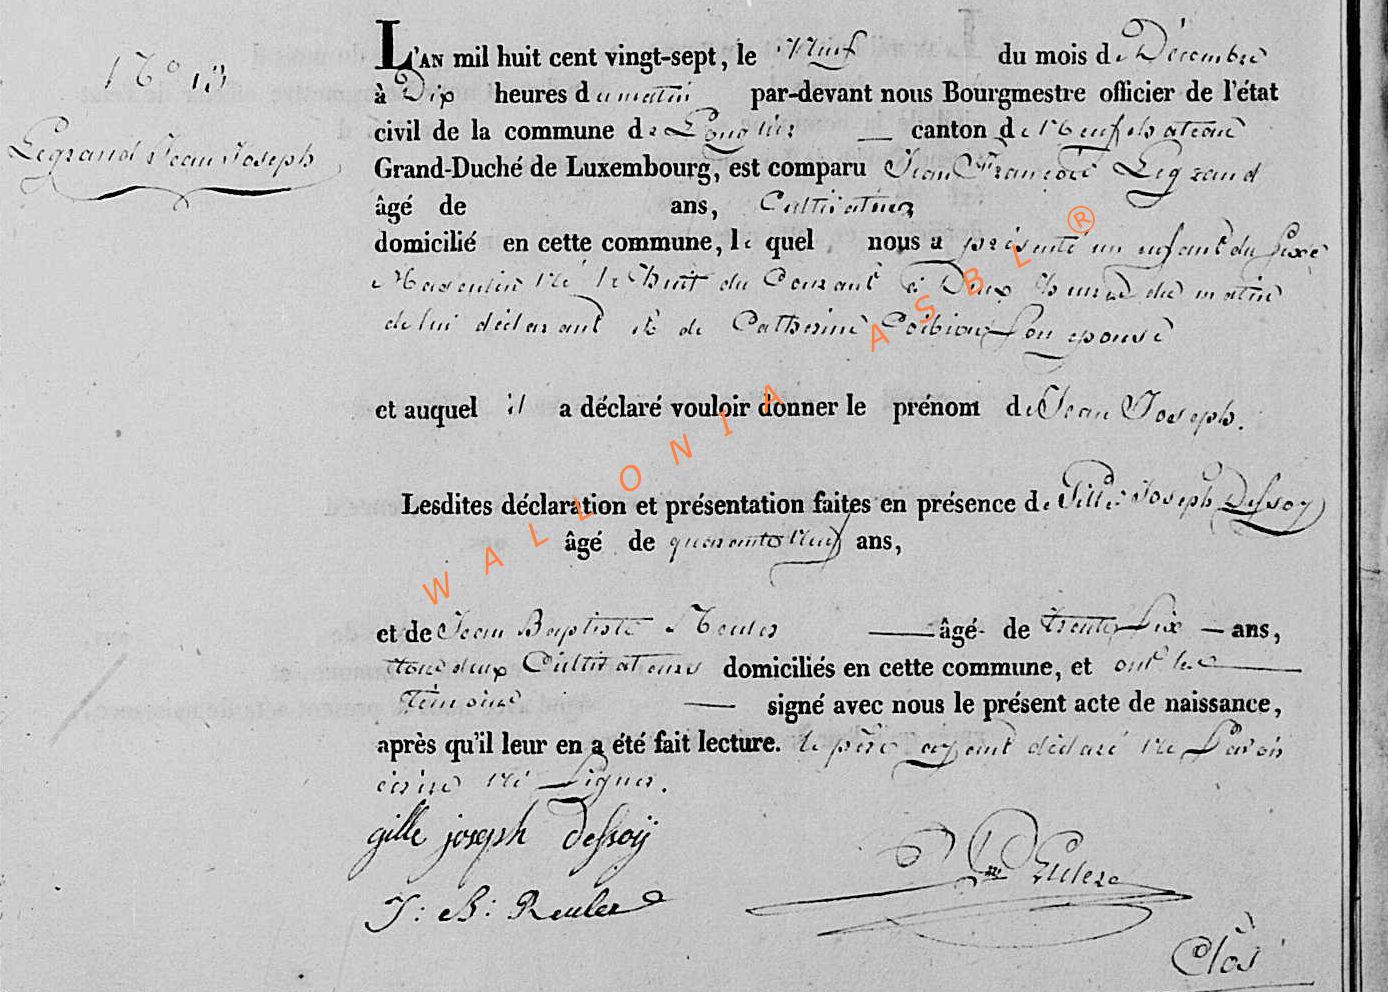 N° 13
Legrand Jean Joseph
L'AN mil huit cent vingt-sept, le Neuf du mois de Décembre
à Dix heures du matin par-devant nous Bourgmestre officier de l'état
civil de la commune de Longlier canton de Neufchateau
Grand-Duché de Luxembourg, est comparu Jean François Legrand
âgé de ans, Cultivateur
domicilié en cette commune, lequel nous a présenté un enfant du Sexe
Masculin Né le huit du Courant à Deux heures du matin
de lui déclarant et de Catherine Collignon Son epouse
et auquel il a déclaré vouloir donner le prénom de Jean Joseph.
Lesdites déclaration et présentation faites en présence de Gille Joseph Dessoy
âgé de quarante Neuf ans,
et de Jean Baptiste Reuler âgé de trente Six ans,
tous deux Cultivateurs domiciliés en cette commune, et ont les
témoins signé avec nous le présent acte de naissance,
après qu'il leur en a été fait lecture. le père ayant déclaré Ne Savoir
écrire Ni Signer.
gille joseph dessoÿ
J: B: Reuler
Clos
WALLONIA ASBL ®